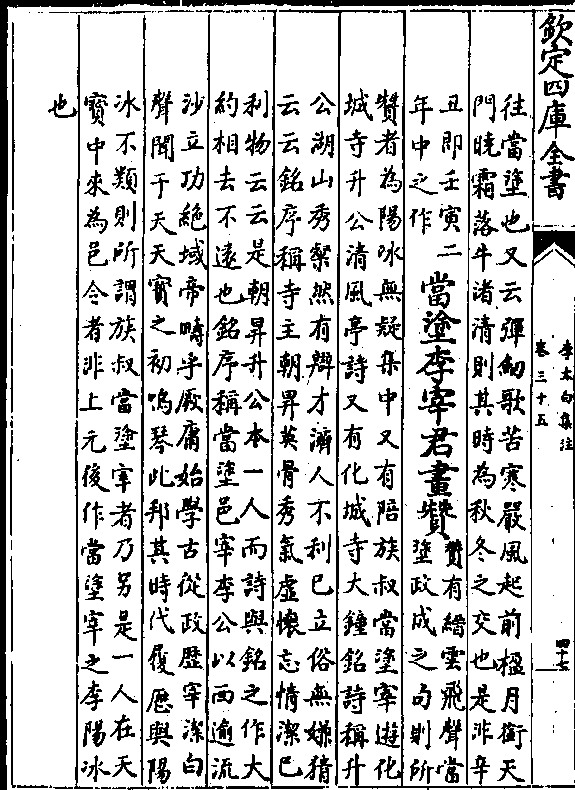 欽定四庫全書
李太白集注
卷三十五
四十七
往當塗也又云彈劒歌苦寒嚴風起前楹月銜天
門曉霜落牛渚清則其時為秋冬之交也是非辛
丑即壬寅二
年中之作
當塗李宰君畫贊
贊有縉雲飛聲當
塗政成之句則所
贊者為陽冰無疑集中又有陪族叔當塗宰遊化
城寺升公清風亭詩又有化城寺大鐘銘詩稱升
公湖山秀粲然有辯才濟人不利已立俗無嫌猜
云云銘序稱寺主朝昇英骨秀氣虛懷忘情潔已
利物云云是朝昇升公本一人而詩與銘之作大
約相去不遠也銘序稱當塗邑宰李公以西逾流
沙立功絕域帝疇乎厥庸始學古從政歴宰潔白
聲聞于天天寶之初鳴琴此邦其時代履歴與陽
冰不類則所謂族叔當塗宰者乃另是一人在天
寶中來為邑令者非上元後作當塗宰之李陽冰
也